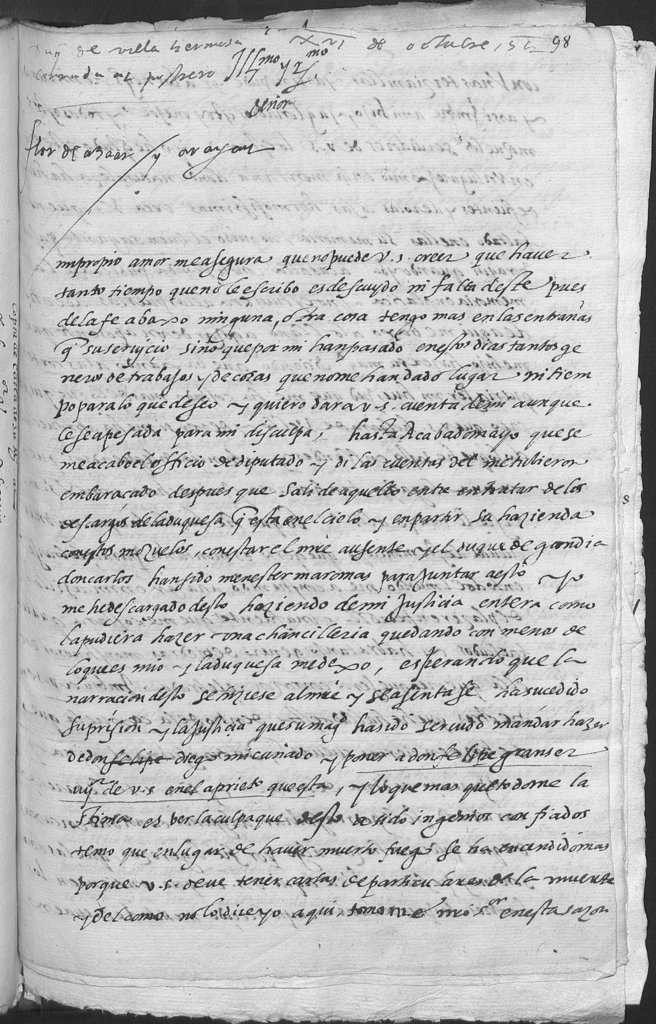 de villa hermosa XVI de octubre, 98
Ill mo y R mo
señor
flor de azaar y arayan
mi propio amor me asegura que no puede v.s. creer que haver
tanto tiempo que no le escribo es descuydo ni falta deste pues
de la fe abaxo ninguna, otra cosa tengo mas en las entrañas
q su servicio sino que por mi han pasado en estos dias tantos ge
neros de trabajos y de cosas que no me han dado lugar ni tiem
po para lo que deseo y quiero dar a v.s. cuenta de mi aunque
le sea pesada para mi disculpa, hasta acabado mayo que se
me acabo el officio de diputado y di las cuentas del me tubieron
embaracado despues que sali de aquello entre en tratar de los
descargos de la duquesa q esta en el cielo y en partir sa hazienda
con estos moçuelos, con estar el mie ausente y el duque de gandia
don carlos han sido menester maromas para juntar a esto yo
me he descargado desto haziendo de mi justicia entera como
la pudiera hazer una chancilleria quedando con menos de
lo que es mio y la duquesa me dexo, esperando que la
narracion desto se hiziese al mie y se asentase ha sucedido
su prision y la justicia que su mag ha sido servido mandar hazer
de don felipe diego mi cuñado y poner a don felipe gran ser
de v.s. en el aprieto que esta, y lo que mas que todo me la
stima es por la culpa que desto a sido ingenios confiados
temo que en lugar de haver muerto fuego se ha encendido mas
porque v.s. deve tener cartas de particulares de la muerte
y del como no lo dire yo aqui, tome me nro s.or en esta sazon